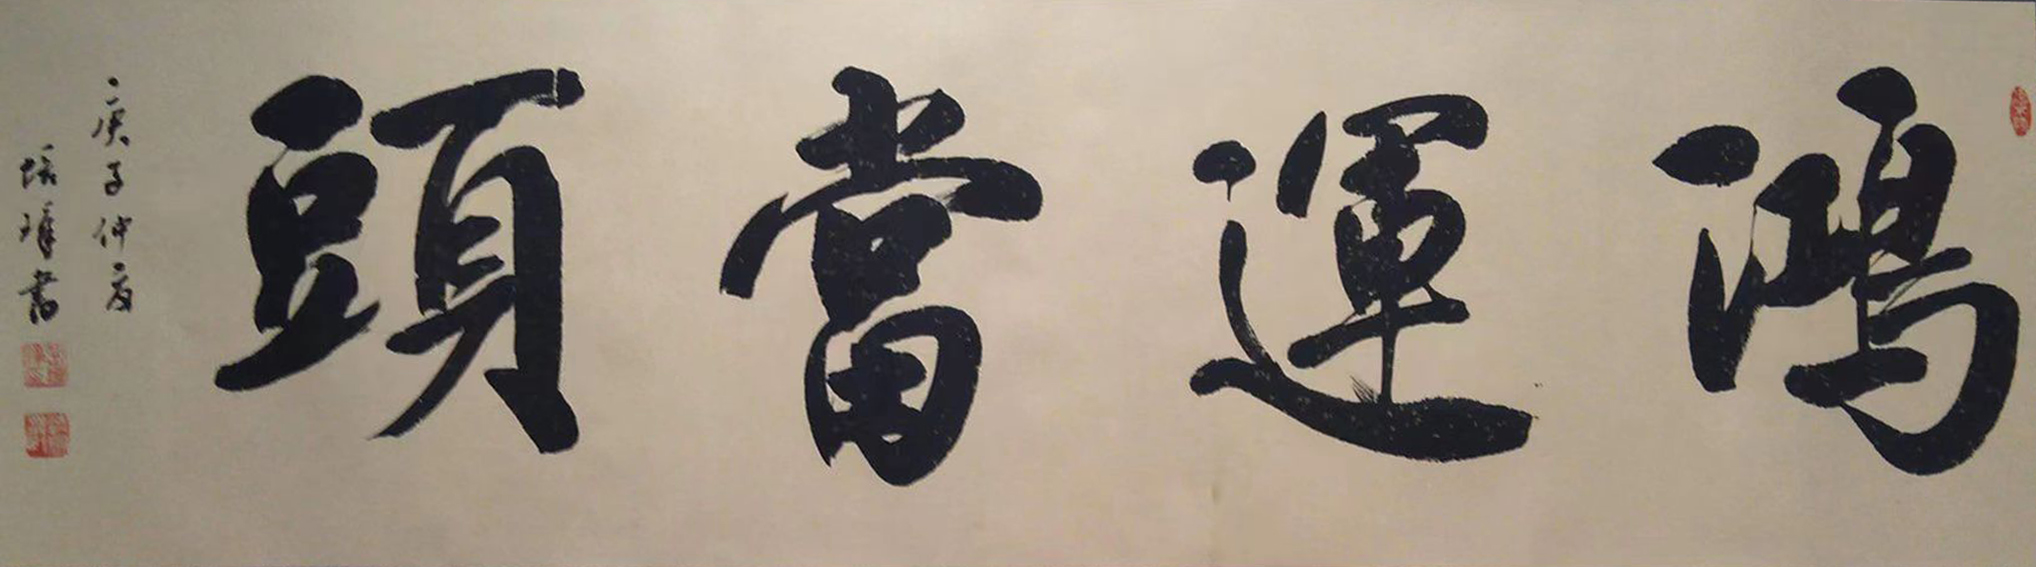 鴻運當頭
庚子仲夏
培璋書